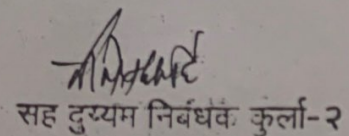 सह दुय्यम निबंधक कुर्ला-२